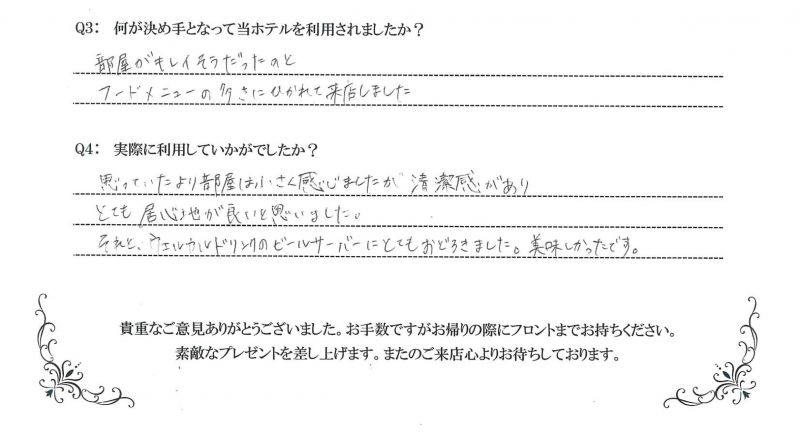 Q3: 何が決め手となって当ホテルを利用されましたか？
部屋がキレイそうだったのと
フードメニューの多さにひかれて来店しました
Q4: 実際に利用していかがでしたか？
思っていたより部屋は小さく感じましたが 清潔感があり
とても居心地が良いと思いました。
それと、ウェルカルドリンクのビールサーバーにとてもおどろきました。美味しかったです。
貴重なご意見ありがとうございました。お手数ですがお帰りの際にフロントまでお持ちください。
素敵なプレゼントを差し上げます。またのご来店心よりお待ちしております。